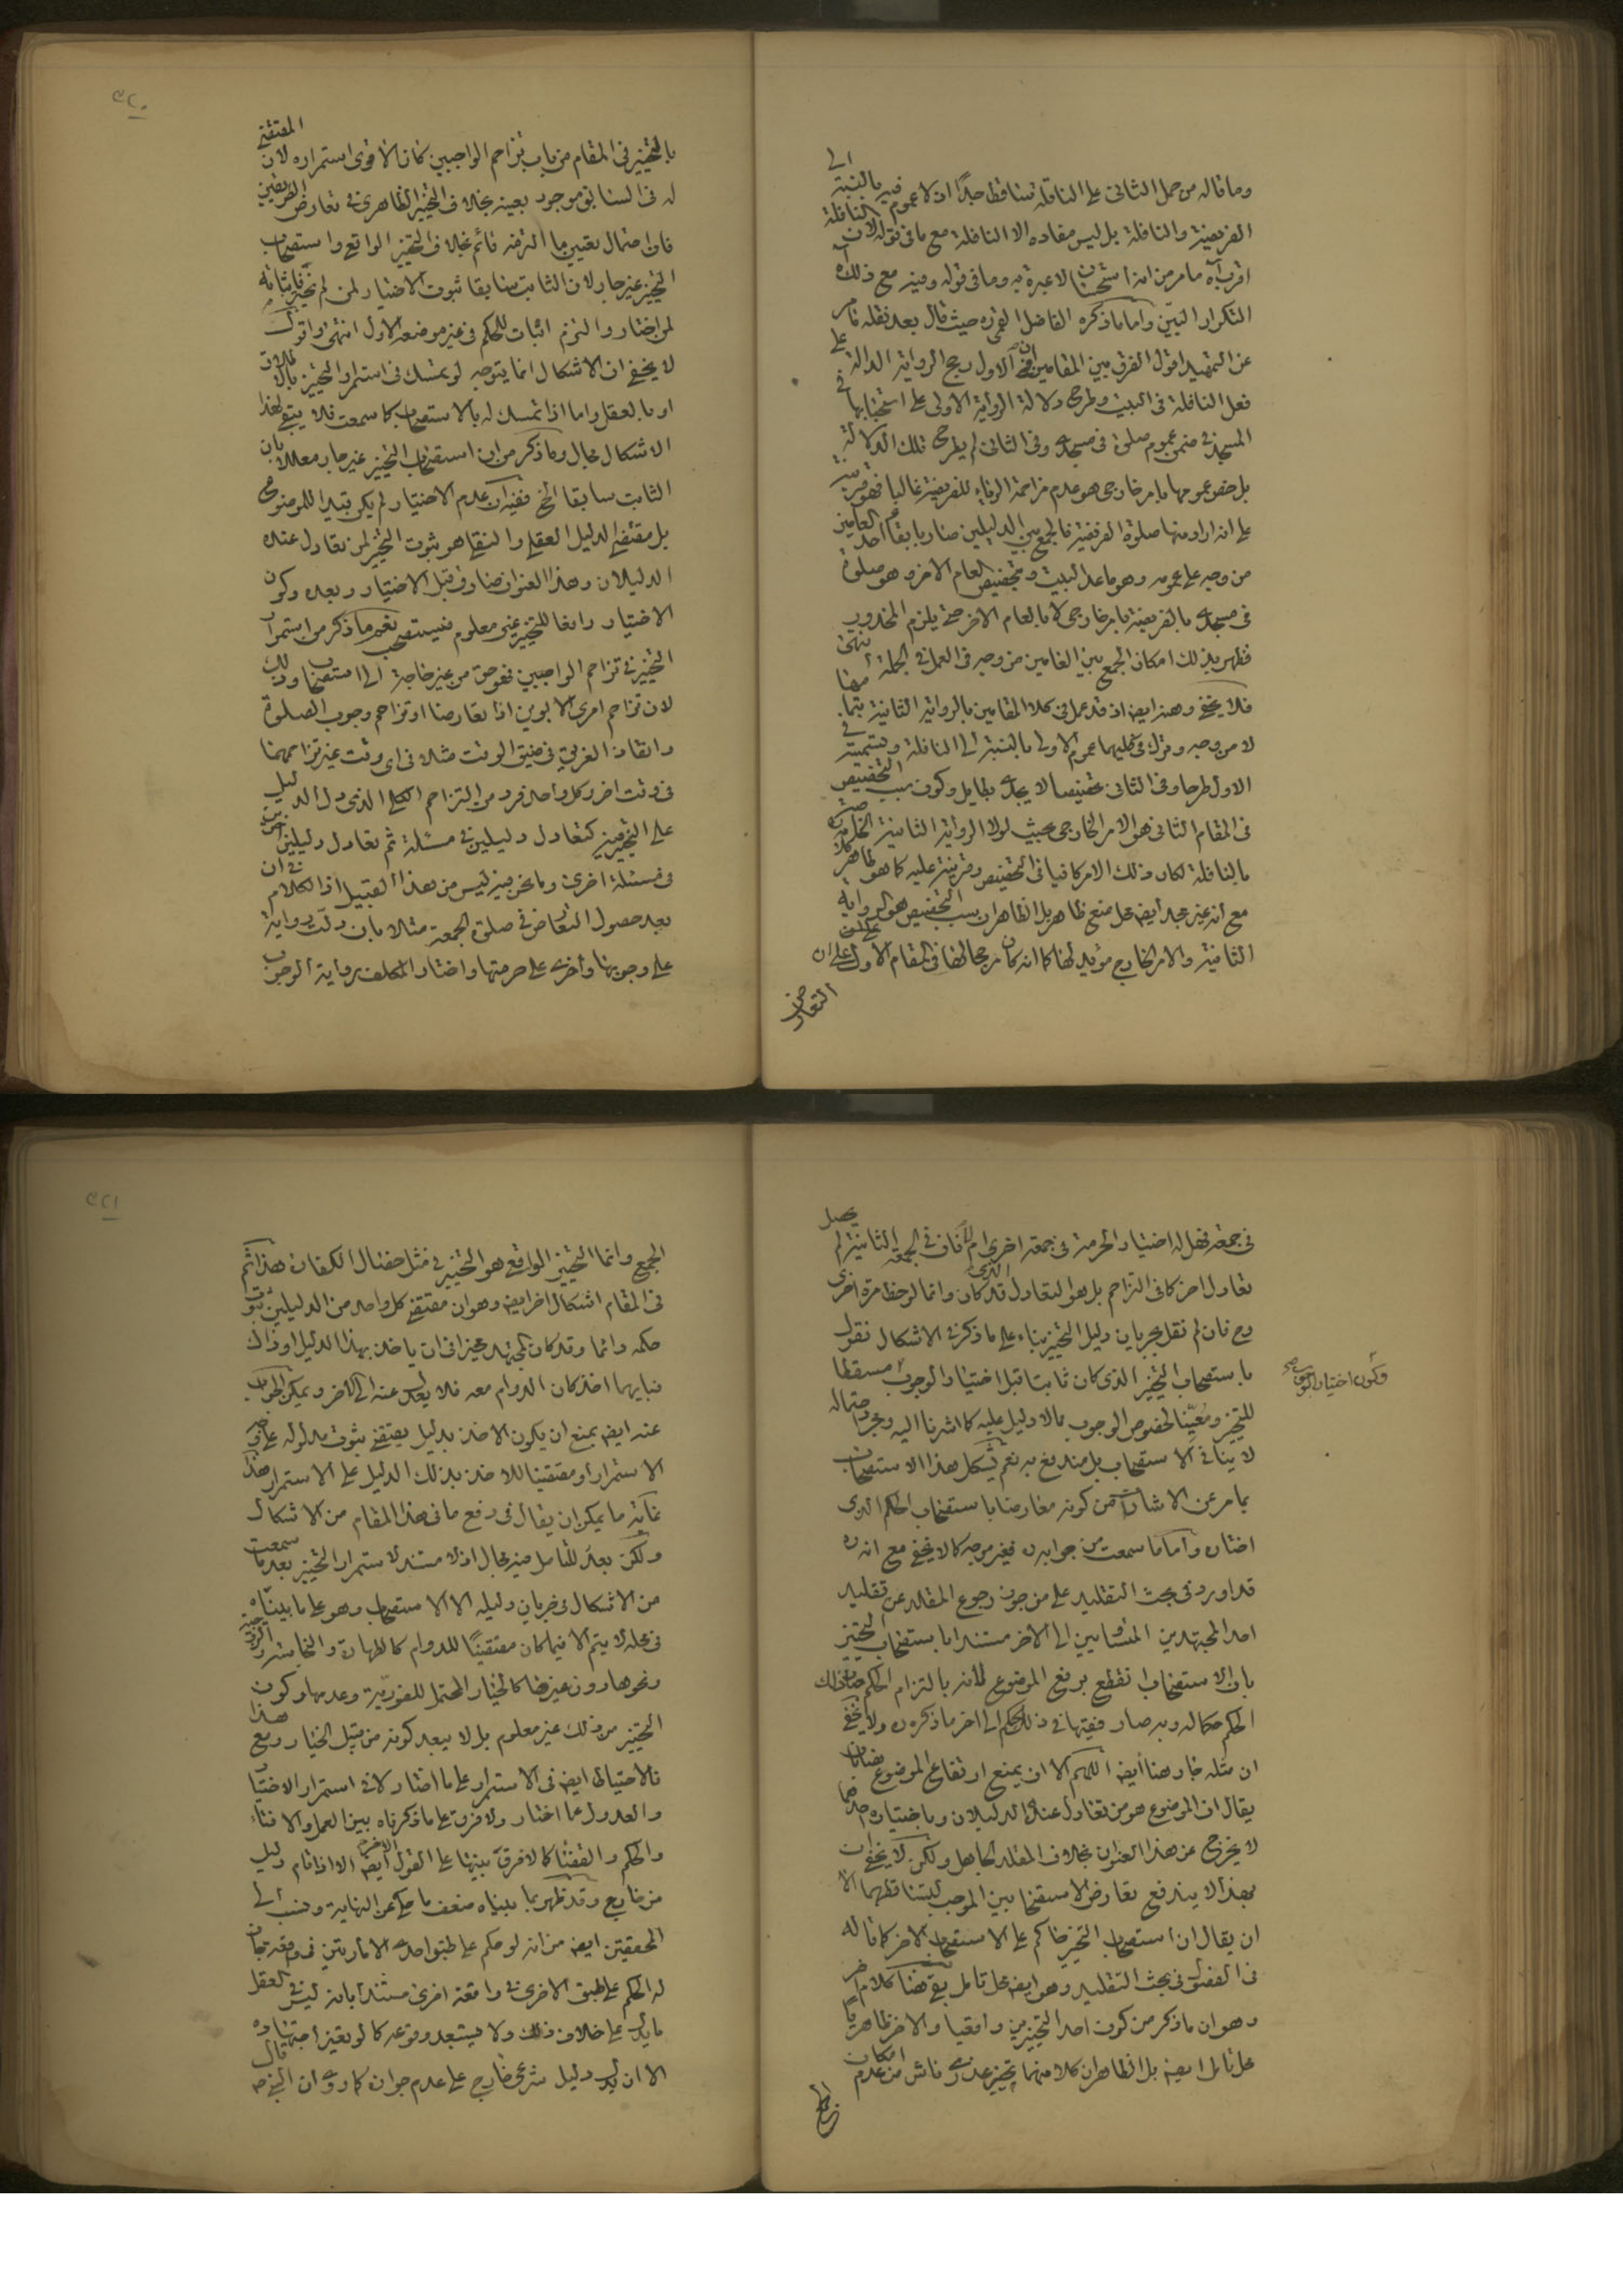 وما قاله من حمل الثاني على النافلة تساقط جدًا اذ لا عموم فيه بالنسبة الى
الفريضة والنافلة بل ليس مفاده الا النافلة مع ما في قوله لان النافلة
اقرب اه ما مر من انه استحسان لا عبرة به وما في قوله وفيه مع ذلك اه
التكرار البين واما ما ذكره الفاضل القمي ره حيث قال بعد نقله ما مر
عن التمهيد اقول الفرق بين المقامين ان في الاول رجح الرواية الدالة على
فعل النافلة في البيت وطرح دلالة الرواية الاولى على استحبابها في
المسجد في ضمن عموم صلوة في مسجدي وفي الثاني لم يطرح تلك الدلالة
بل خص عمومها بامر خارجي هو عدم مزاحمة الرياء للفريضة غالبا فهو قرينة
على انه اراد منها صلوة الفريضة فالجمع بين الدليلين صار بابقاء احد العامين
من وجه على عمومه وهو ما عدا البيت وبتخصيص العام الاخر وهو صلوة
في مسجدي بالفريضة بامر خارجي لا بالعام الاخر حتى يلزم المحذور
فظهر بذلك امكان الجمع بين العامين من وجه في العمل في الجملة انتهى
فلا يخفى وهنه ايضا اذ قد عمل في كلا المقامين بالرواية الثانية بتمامها
لا من وجه وترك في كليهما عموم الاولى بالنسبة الى النافلة وتسميته في
الاول طرحا وفي الثاني تخصيصا لا يجدي بطايل وكون سبب التخصيص
في المقام الثاني هو الامر الخارجي بحيث لولا الرواية الثانية الخاصة
بالنافلة لكان ذلك الامر كافيا في التخصيص وقرينة عليه كما هو ظاهر كلامه
مع انه غير مجد ايضا محل منع ظاهر بل الظاهر ان سبب التخصيص هو الرواية
الثانية والامر الخارج مؤيد لها كما انه كان مرجحا لها في المقام الاول على ان
التعارض
٣٢٠
بالتخيير في المقام من باب تزاحم الواجبين كان الاقوى استمراره لان المقتضي
له في السابق موجود بعينه بخلاف التخيير الظاهري في تعارض الطريقين
فان احتمال تعيين ما التزمه قائم بخلاف التخيير الواقعي واستصحاب
التخيير غير جار لان الثابت سابقا ثبوت الاختيار لمن لم يتخير فاثباته
لمن اختار والتزم اثبات للحكم في غير موضعه الاول انتهى واقول
لا يخفى ان الاشكال انما يتوجه لو تمسك في استمرار التخيير بالاطلاقات
او بالعقل واما اذا تمسك له بالاستصحاب كما سمعت فلا يبقى لهذا
الاشكال مجال وما ذكر من ان استصحاب التخيير غير جار معللا بان
الثابت سابقا الخ ففيه ان عدم الاختيار لم يكن قيدا للموضوع
بل مقتضى الدليل العقلي والنقلي هو ثبوت التخيير لمن تعادل عنده
الدليلان وهذا العنوان صادق قبل الاختيار وبعده وكون
الاختيار رافعا للتخيير غير معلوم فيستصحب نعم ما ذكر من استمرار
التخيير في تزاحم الواجبين فهو حق من غير حاجة الى استصحاب وذلك
لان تزاحم امري الابوين اذا تعارضا او تزاحم وجوب الصلوة
وانقاذ الغريق في ضيق الوقت مثلا في اي وقت غير تزاحمهما
في وقت اخر وكل واحد فرد من التزاحم الكلي الذي دل الدليل
على التخيير فيه كتعادل دليلين في مسئلة ثم تعادل دليلين اخرين
في مسئلة اخرى وما نحن فيه ليس من هذا القبيل اذ الكلام في ان
بعد حصول التعارض في صلوة الجمعة مثلا بان دلت رواية
على وجوبها واخرى على حرمتها واختار المكلف رواية الوجوب
في جمعة فهل له اختيار الحرمة في جمعة اخرى ام لا فان في الجمعة الثانية لم يحصل
تعادل اخر كما في التزاحم بل هو التعادل الذي قد كان وانما لوحظ مرة اخرى
وح فان لم نقل بجريان دليل التخيير بناء على ما ذكر في الاشكال نقول
باستصحاب التخيير الذي كان ثابتا قبل اختيار الوجوب مسقطا
وكون اختيار الوجوب صح
للتخيير ومعينا لخصوص الوجوب مما لا دليل عليه كما اشرنا اليه ومجرد احتماله
لا ينافي الاستصحاب بل مندفع به نعم يشكل هذا الاستصحاب
بما مر عن الاشارات من كونه معارضا باستصحاب الحكم الذي
اختاره واما ما سمعت من جوابه ره فغير موجه كما لا يخفى مع انه ره
قد اورد في بحث التقليد على من جوز رجوع المقلد عن تقليد
احد المجتهدين المتساويين الى الاخر مستندا باستصحاب التخيير
بان الاستصحاب انقطع برفع الموضوع لانه بالتزام الحكم صار ذلك
الحكم حكما له وبه صار فقيها في ذلك الحكم الى اخر ما ذكره ره ولا يخفى
ان مثله جار هنا ايضا اللهم الا ان يمنع ارتفاع الموضوع هنا بان
يقال ان الموضوع هو من تعادل عنده الدليلان وباختياره احدهما
لا يخرج عن هذا العنوان بخلاف المقلد الجاهل ولكن لا يخفى ان
بهذا لا يندفع تعارض الاستصحابين الموجب لتساقطهما الا
ان يقال ان استصحاب التخيير حاكم على الاستصحاب الاخر كما قاله
في الفصول في بحث التقليد وهو ايضا محل تامل بقي هنا كلام اخر
وهو ان ما ذكر من كون احد التخييرين واقعيا والاخر ظاهريا
محل تامل ايضا بل الظاهر ان كلا منهما تخيير عذري وناش من عدم امكان
الجمع
٣٢١
الجمع وانما التخيير الواقعي هو التخيير في مثل خصال الكفارة هذا ثم
في المقام اشكال اخر ايضا وهو ان مقتضى كل واحد من الدليلين ثبوت
حكمه دائما وقد كان المجتهد مخيرا في ان ياخذ بهذا الدليل او ذاك
فبايهما اخذ كان الدوام معه فلا يعدل عنه الى الاخر ويمكن الجواب
عنه ايضا بمنع ان يكون الاخذ بدليل يقتضي ثبوت مدلوله على وجه
الاستمرار او مقتضيا للاخذ بذلك الدليل على الاستمرار هذا
غاية ما يمكن ان يقال في رفع ما في هذا المقام من الاشكال
ولكن بعد للتامل فيه مجال اذ لا مستند لاستمرار التخيير بعد ما سمعت
من الاشكال في جريان دليله الا الاستصحاب وهو على ما بيناه
في محله لا يتم الا فيما كان مقتضيا للدوام كالطهارة والنجاسة والزوجية
ونحوها دون غيرها كالخيار المحتمل للفورية وعدمها وكون
التخيير من ذلك غير معلوم بل لا يبعد كونه من قبيل الخيار ومع هذا
فالاحتياط ايضا في الاستمرار على ما اختار لا في استمرار الاختيار
والعدول عما اختار ولا فرق على ما ذكرناه بين العمل والافتاء
والحكم والقضاء كما لا فرق بينها على القول الاخر ايضا الا اذا قام دليل
من خارج وقد ظهر بما بيناه ضعف ما حكي عن النهاية ونسب الى
المحققين ايضا من انه لو حكم على طبق احدى الامارتين في واقعة جاز
له الحكم على طبق الاخرى في واقعة اخرى مستندا بانه ليس في العقل
ما يدل على خلاف ذلك ولا يستبعد وقوعه كما لو تغير اجتهاده
الا ان يدل دليل شرعي خارج على عدم جوازه كما روي ان النبي ص قال